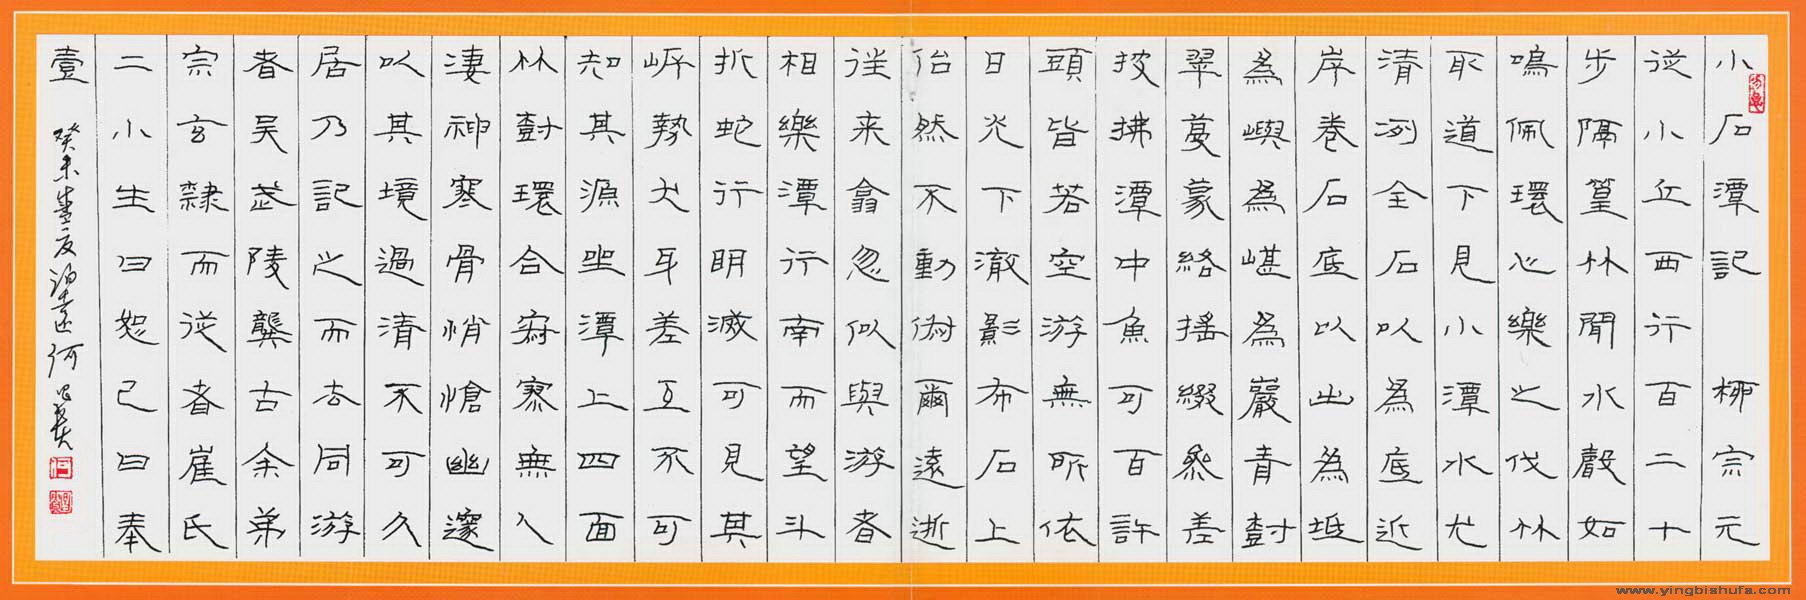 小石潭記 柳宗元
從小丘西行百二十
步隔篁竹聞水聲如
鳴佩環心樂之伐竹
取道下見小潭水尤
清冽全石以為底近
岸卷石底以出為坻
為嶼為嵁為巖青樹
翠蔓蒙絡搖綴參差
披拂潭中魚可百許
頭皆若空游無所依
日光下澈影布石上
佁然不動俶爾遠逝
往来翕忽似與游者
相樂潭行南而望斗
折蛇行明滅可見其
岸勢犬牙差互不可
知其源坐潭上四面
竹樹環合寂寥無人
凄神寒骨悄愴幽邃
以其境過清不可久
居乃記之而去同游
者吳武陵龔古余弟
宗玄隸而從者崔氏
二小生曰恕己曰奉
壹
癸未
www.yingbishufa.com